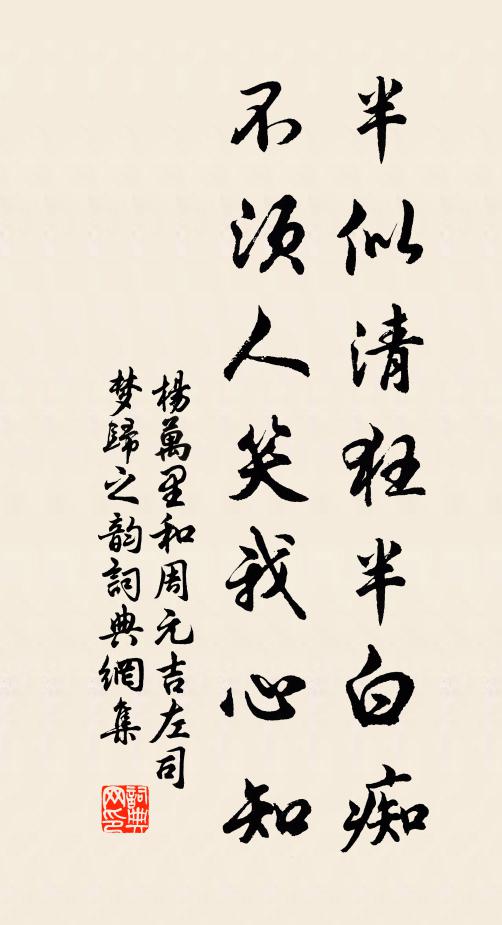 半似清狂半白痴
不須人笑我心知
楊萬里和周元吉左司
梦歸之韵詞典網集
詞典网印